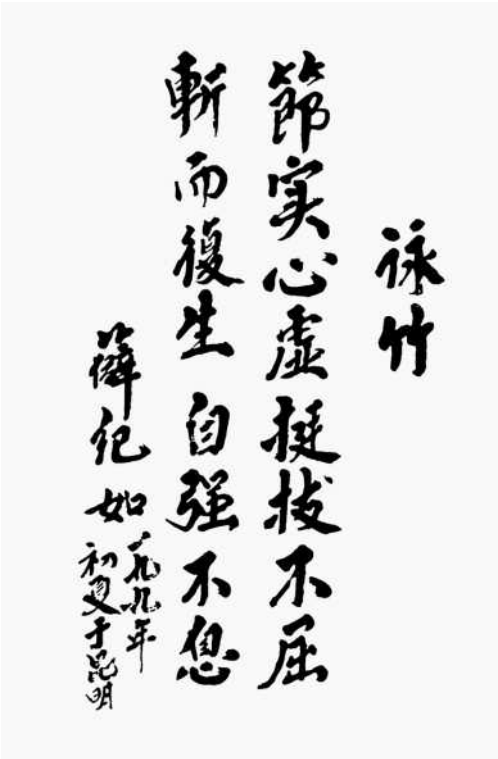 詠竹
節实心虚挺拔不屈
斬而復生自强不息
薛纪如
一九九年
初夏于昆明